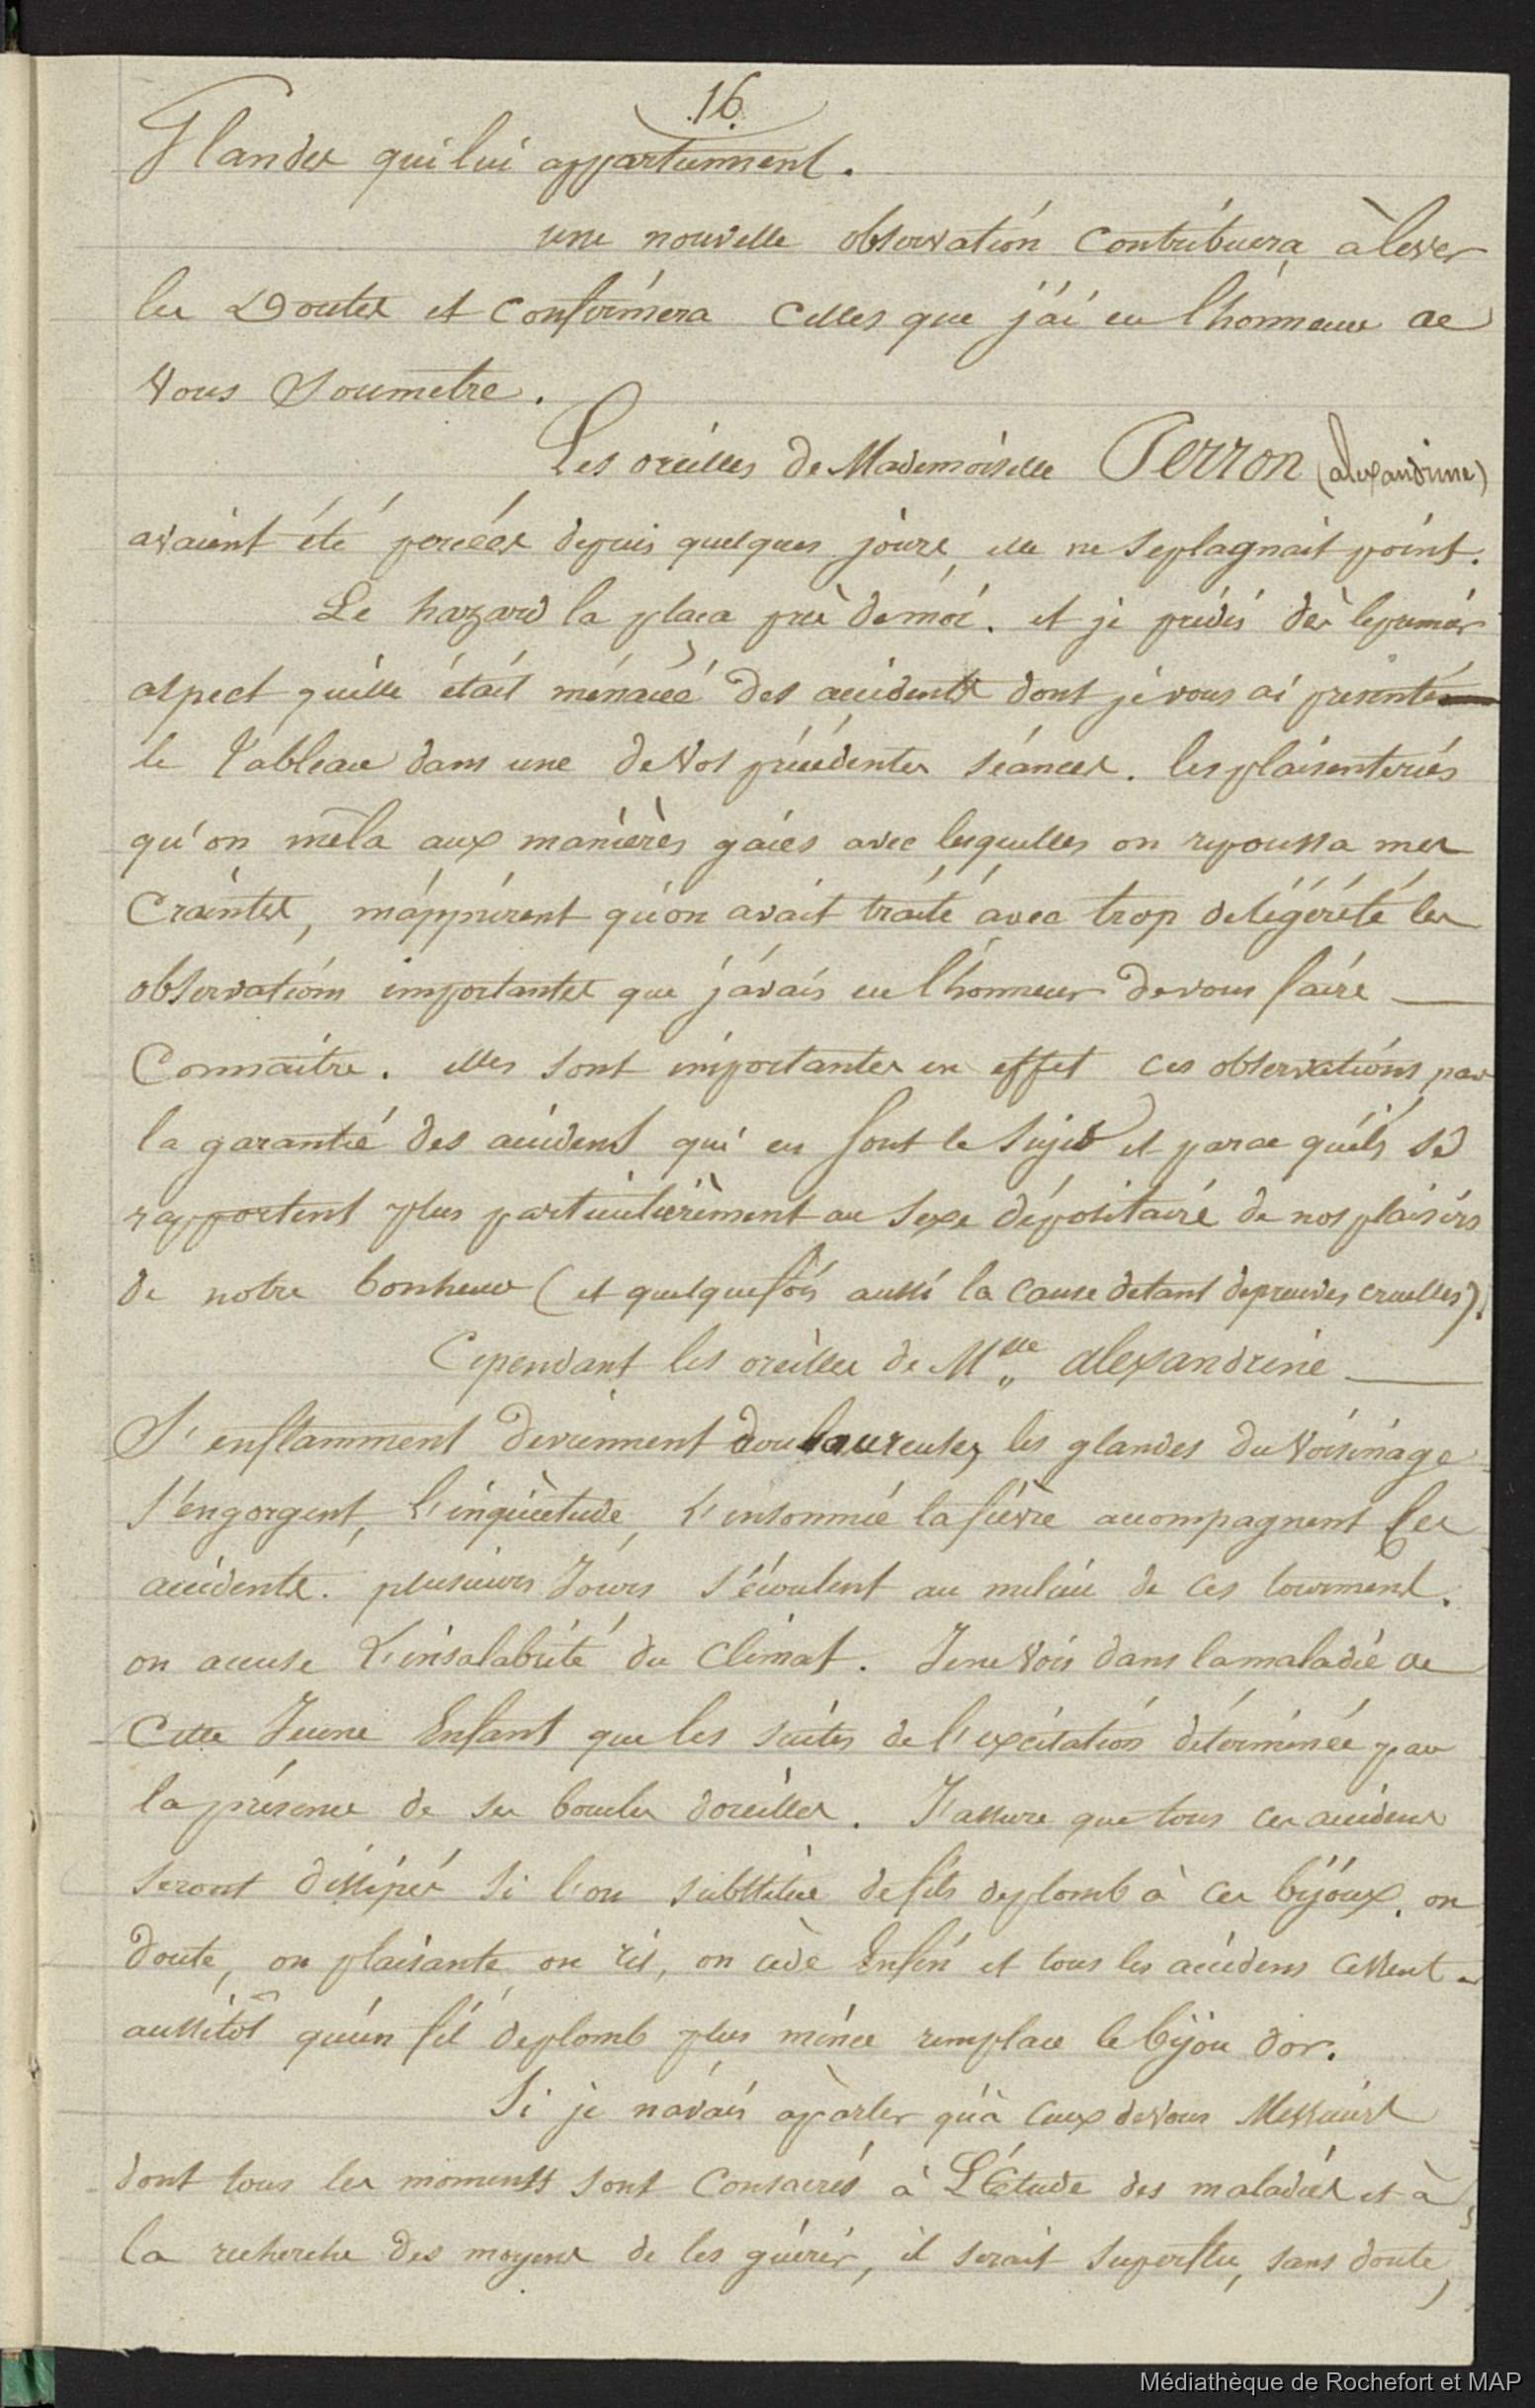 .16.
Glandes qui lui appartiennent.
une nouvelle observation contribuera à lever
les Doutes et confirmera celles que j'ai eu l'honneur de
vous soumetre.
Les oreilles de Mademoiselle Perron (alexandrine)
avaient été percées depuis quelques jours, elle ne se plagnait point.
Le hazard la plaça près de moi. et je prédis dès le premier
aspect qu'elle était ménacée des accidents dont je vous ai presenté
le Tableau dans une de vos précédentes séances. les plaisenteries
qu'on mêla aux manières gaies avec lesquelles on repoussa mes
Craintes, m'apprirent qu'on avait traité avec trop de légérété les
observations importantes que j'avais eu l'honneur de vous faire
Connaitre. elles sont importantes en effet ces observations par
la garantie des accidens qui en font le sujet et parce qu'ils se
rapportent plus particulièrement au sexe dépositaire de nos plaisirs
de notre bonheur (et quelquefois aussi la cause de tant d'epreuves cruelles).
Cependant les oreilles de Mlle alexandrine
S'enflamment deviennent douloureuses, les glandes du voisinage
s'engorgent, l'inquiètude, l'insomnie la fièvre accompagnent les
accidents. plusieurs Jours s'écoulent au milieu de ces tourment.
on accuse L'insalabrité du climat. Je ne vois dans la maladie de
Cette Jeune Enfant que les suites de l'excitation déterminée par
la présence de ses boucles d'oreilles. J'assure que tous ces accidens
seront dissipés si l'on substitue de fils de plomb à ces bijoux. on
doute, on plaisante, on rit, on cède Enfin et tous les accidens cessent
aussitôt qu'un fil de plomb plus mince remplace le bijou d'or.
Si je n'avais à parler qu'à ceux de vous Messieurs
dont tous les moments sont consacrés à L'Étude des maladies et à
la recherche des moyens de les guérir, il serait superflu, sans doute,
Médiathèque de Rochefort et MAP